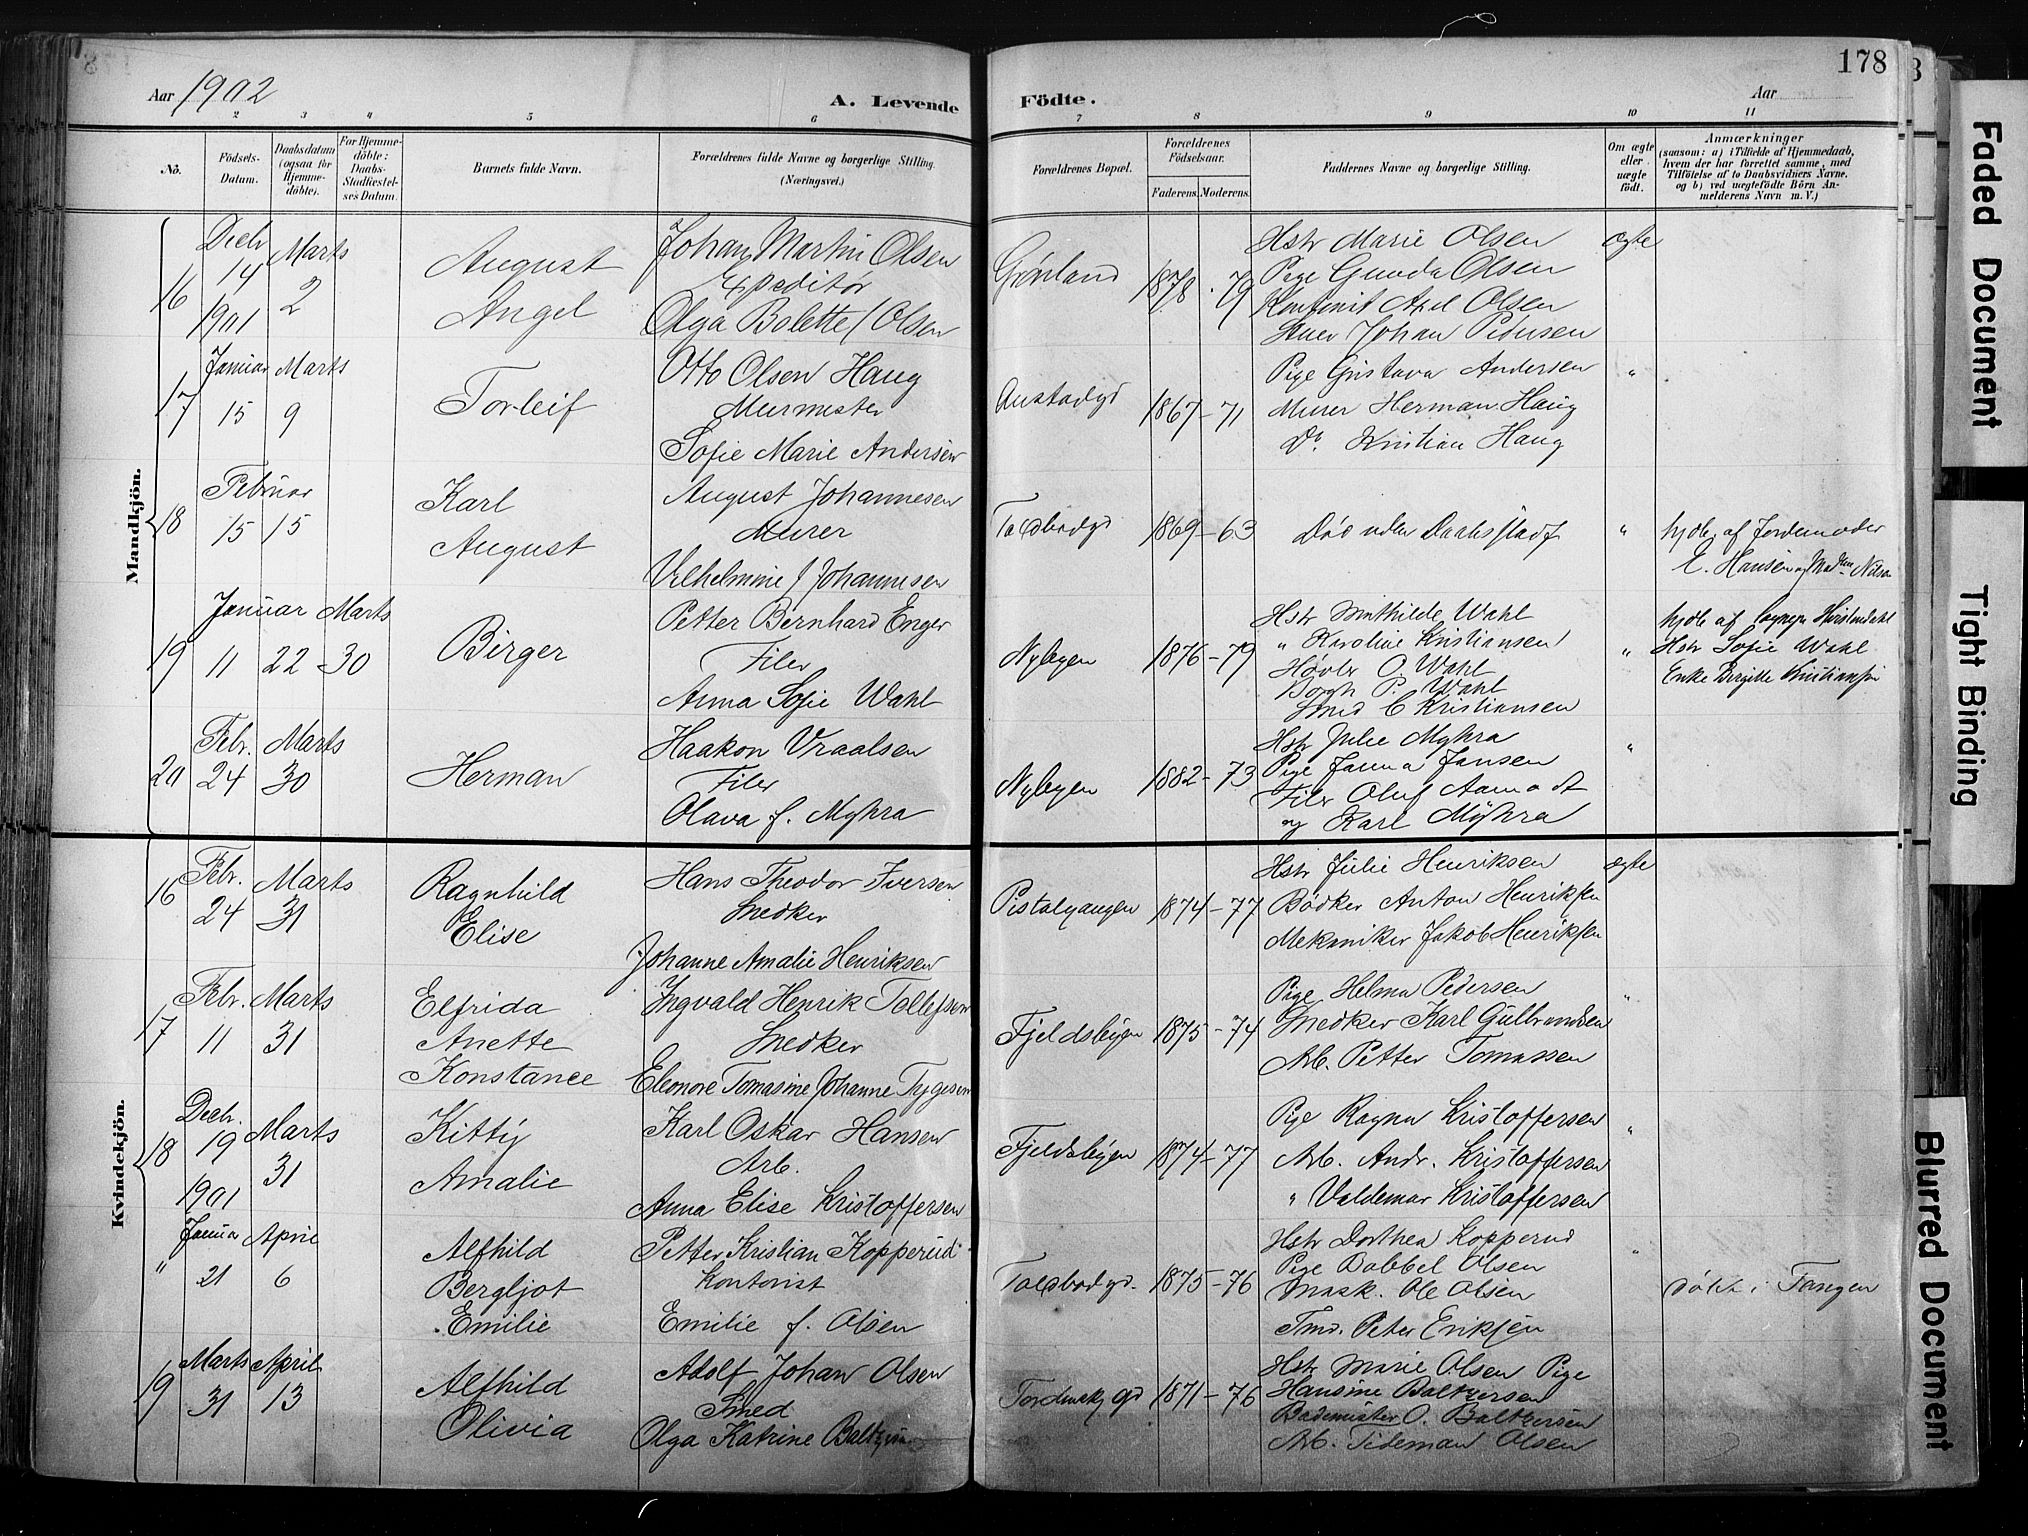 178
Aar 1902
A. Levende Födte.
Aar
2 3 4 5 6 7 8 9 10 11
No.
Födsels-Datum.
Daabsdatum (ogsaa for Hjemme-döbte).
For Hjemme-döbte: Daabs-Stadfæstel-ses Datum.
Barnets fulde Navn.
Forældrenes fulde Navne og borgerlige Stilling. (Næringsvei.)
Forældrenes Bopæl.
Forældrenes Födselsaar.
Faderens. Moderens.
Faddernes Navne og borgerlige Stilling.
Om ægte eller uægte födt.
Anmærkninger
(saasom: a) i Tilfælde af Hjemmedaab,
hvem der har forrettet samme, med
Tilföielse af to Daabsvidners Navne.
og b) ved uægtefödte Börn An-
melderens Navn m. V.)
Mandkjön.
16 Decbr 14 1901 Marts 2
August Angel
Johan Martin Olsen
Expeditør
Olga Bolette f Olsen
Grønland 1878 - 79
Hstr Marie Olsen
Pige Gunda Olsen
Axel Olsen
Johan Pedersen
ægte
17 Januar 15 Marts 9
Torleif
Otto Olsen Haug
Murmester
Sofie Marie Andersen
1867 - 71
Pige Gustava Andersen
Murer Herman Haug
Do Kristian Haug
"
18 Februar 15 15
Karl August
August Johannesen
Murer
Vilhelmine f Johannesen
Toldbodgd 1869 - 63
Død uden Daabsstadf
"
hjdb. af Jordemoder
E. Hansen og Nilsen
19 Januar 11 Marts 22 - 30
Birger
Petter Bernhard Enger
Filer
Anna Sofie Wahl
Nybyen 1876 - 79
Hstr Mathilde Wahl
" Karoline Kristiansen
Høvler O Wahl
P. Wahl
Smed C Kristiansen
"
hjdb af
Hstr Sofie Wahl
Enke Birgitte Kristiansen
20 Febr. 24 Marts 30
Herman
Haakon Vraalsen
Filer
Olava f. Myhra
Nybyen 1882 - 73
Hstr Julie Myhra
Pige Janna Jansen
Filer Oluf Aamodt
og Karl Myhra
"
Kvindekjön.
16 Febr. 24 Marts 31
Ragnhild Elise
Hans Theodor Iversen
Snedker
Johanne Amalie Henriksen
Pistolgangen 1874 - 77
Hstr Julie Henriksen
Bødker Anton Henriksen
Mekaniker Jakob Henriksen
ægte
17 Febr. 11 Marts 31
Elfrida Anette Konstance
Ingvald Henrik Tollefsen
Snedker
Eleonore Tomasine Johanne Tygesen
Fjeldsbyen 1875 - 74
Pige Helma Pedersen
Snedker Karl Gulbrandsen
Arb. Petter Tomassen
"
18 Decbr. 19 1901 Marts 31
Kitty Amalie
Karl Oskar Hansen
Arb.
Anna Elise Kristoffersen
Fjeldsbyen 1874 - 77
Pige Ragna Kristoffersen
Arb. Andr. Kristoffersen
" Valdemar Kristoffersen
"
" Januar 21 April 6
Alfhild Bergljot Emilie
Petter Kristian Kopperud
Kontorist
Emilie f. Olsen
Toldbodgd. 1875 - 76
Hstr Dorthea Kopperud
Pige Olsen
Mask. Ole Olsen
Tmd. Peter Eriksen
"
døbt i Tangen
19 Marts 31 April 13
Alfhild Olivia
Adolf Johan Olsen
Smed
Olga Katrine Baltzersen
1871 - 76
Hstr Marie Olsen Pige
Hansine Baltzersen
Bademester O. Baltzersen
Arb. Tideman Olsen
Faded Document
Tight Binding
Blurred Document